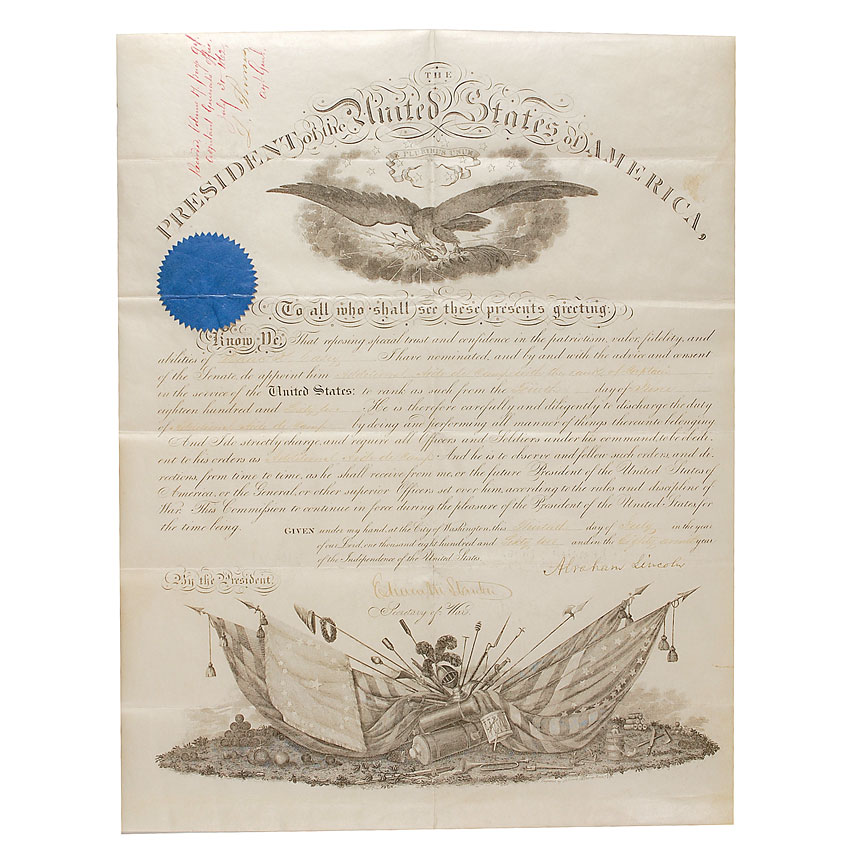 THE
PRESIDENT of the United States of AMERICA,
E PLURIBUS UNUM
To all who shall see these presents greeting:
Know Ye, That reposing special trust and confidence in the patriotism, valor, fidelity, and
abilities of I have nominated, and by and with the advice and consent
of the Senate, do appoint him Additional Aide de Camp with the rank of Captain
in the service of the United States: to rank as such from the day of June
eighteen hundred and Sixty two He is therefore carefully and diligently to discharge the duty
of Additional Aide de Camp by doing and performing all manner of things thereunto belonging.
And I do strictly charge, and require all Officers and Soldiers under his command, to be obedi-
ent to his orders as Additional Aide de Camp And he is to observe and follow such orders, and di-
rections, from time to time, as he shall receive from me, or the future President of the United States of
America, or the General, or other superior Officers set over him, according to the rules and discipline of
War. This Commission to continue in force during the pleasure of the President of the United States, for
the time being.
GIVEN under my hand, at the City of Washington, this day of July in the year
of our Lord, one thousand eight hundred and Sixty two and in the Eighty seventh year
of the Independence of the United States.
Abraham Lincoln
By the President,
Edwin M Stanton
Secretary of War.